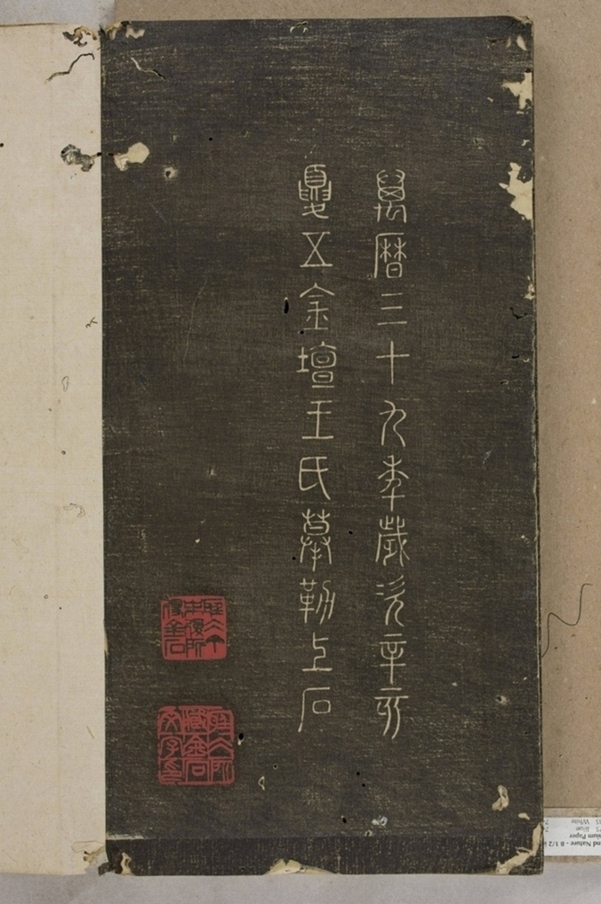 萬曆三十九年歲次辛亥
夏五金壇王氏摹勒上石